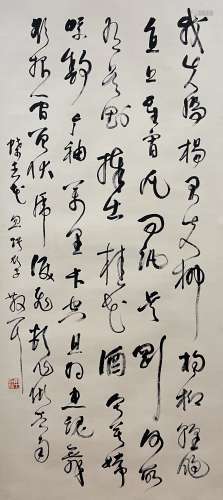 我失驕楊君失柳楊柳輕颺
直上重霄九问讯吴刚何所
有吴刚捧出桂花酒寂寞嫦
娥舒广袖萬里长空且为忠魂舞
忽报人间曾伏虎泪飞顿作倾盆雨
蝶恋花